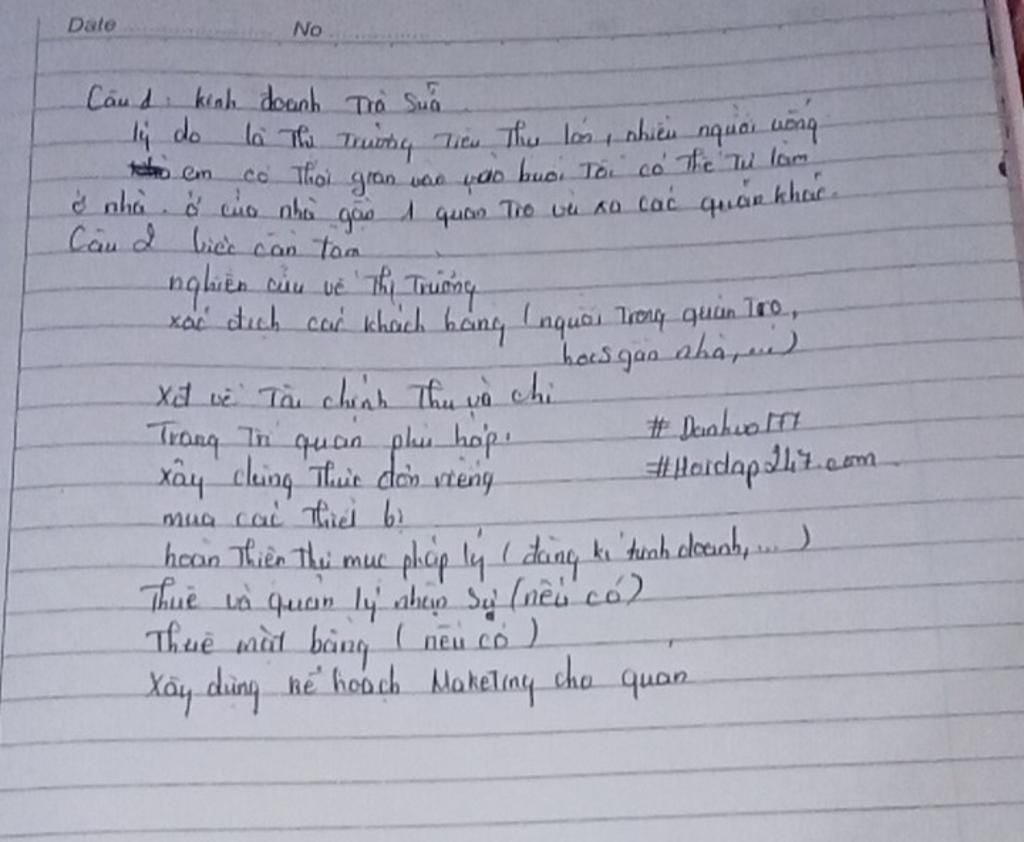 Date No
Câu 1: kinh doanh Trà Sữa
lý do là Thị Trường Tiêu Thụ lớn, nhiều người uống
em có Thời gian vào buổi Tối có Thể Tự làm
ở nhà. ở của nhà gần 1 quán Trọ và xa các quán khác.
Câu 2 việc cần làm
nghiên cứu về Thị Trường
xác đích các khách hàng (người Trong quán Trọ,
gần nhà,...)
Xđ về Tài chính Thu và chi
Trang Trí quán phù hợp.
# Danhvo177
Xây dựng Thực đơn riêng
#Hoidap247.com
mua các Thiết bị
hoàn Thiện Thủ mục pháp lý (đăng kí kinh doanh,...)
Thuê và quản lý nhân sự (nếu có)
Thuê mặt bằng (nếu có)
Xây dựng kế hoạch MakeTing cho quán